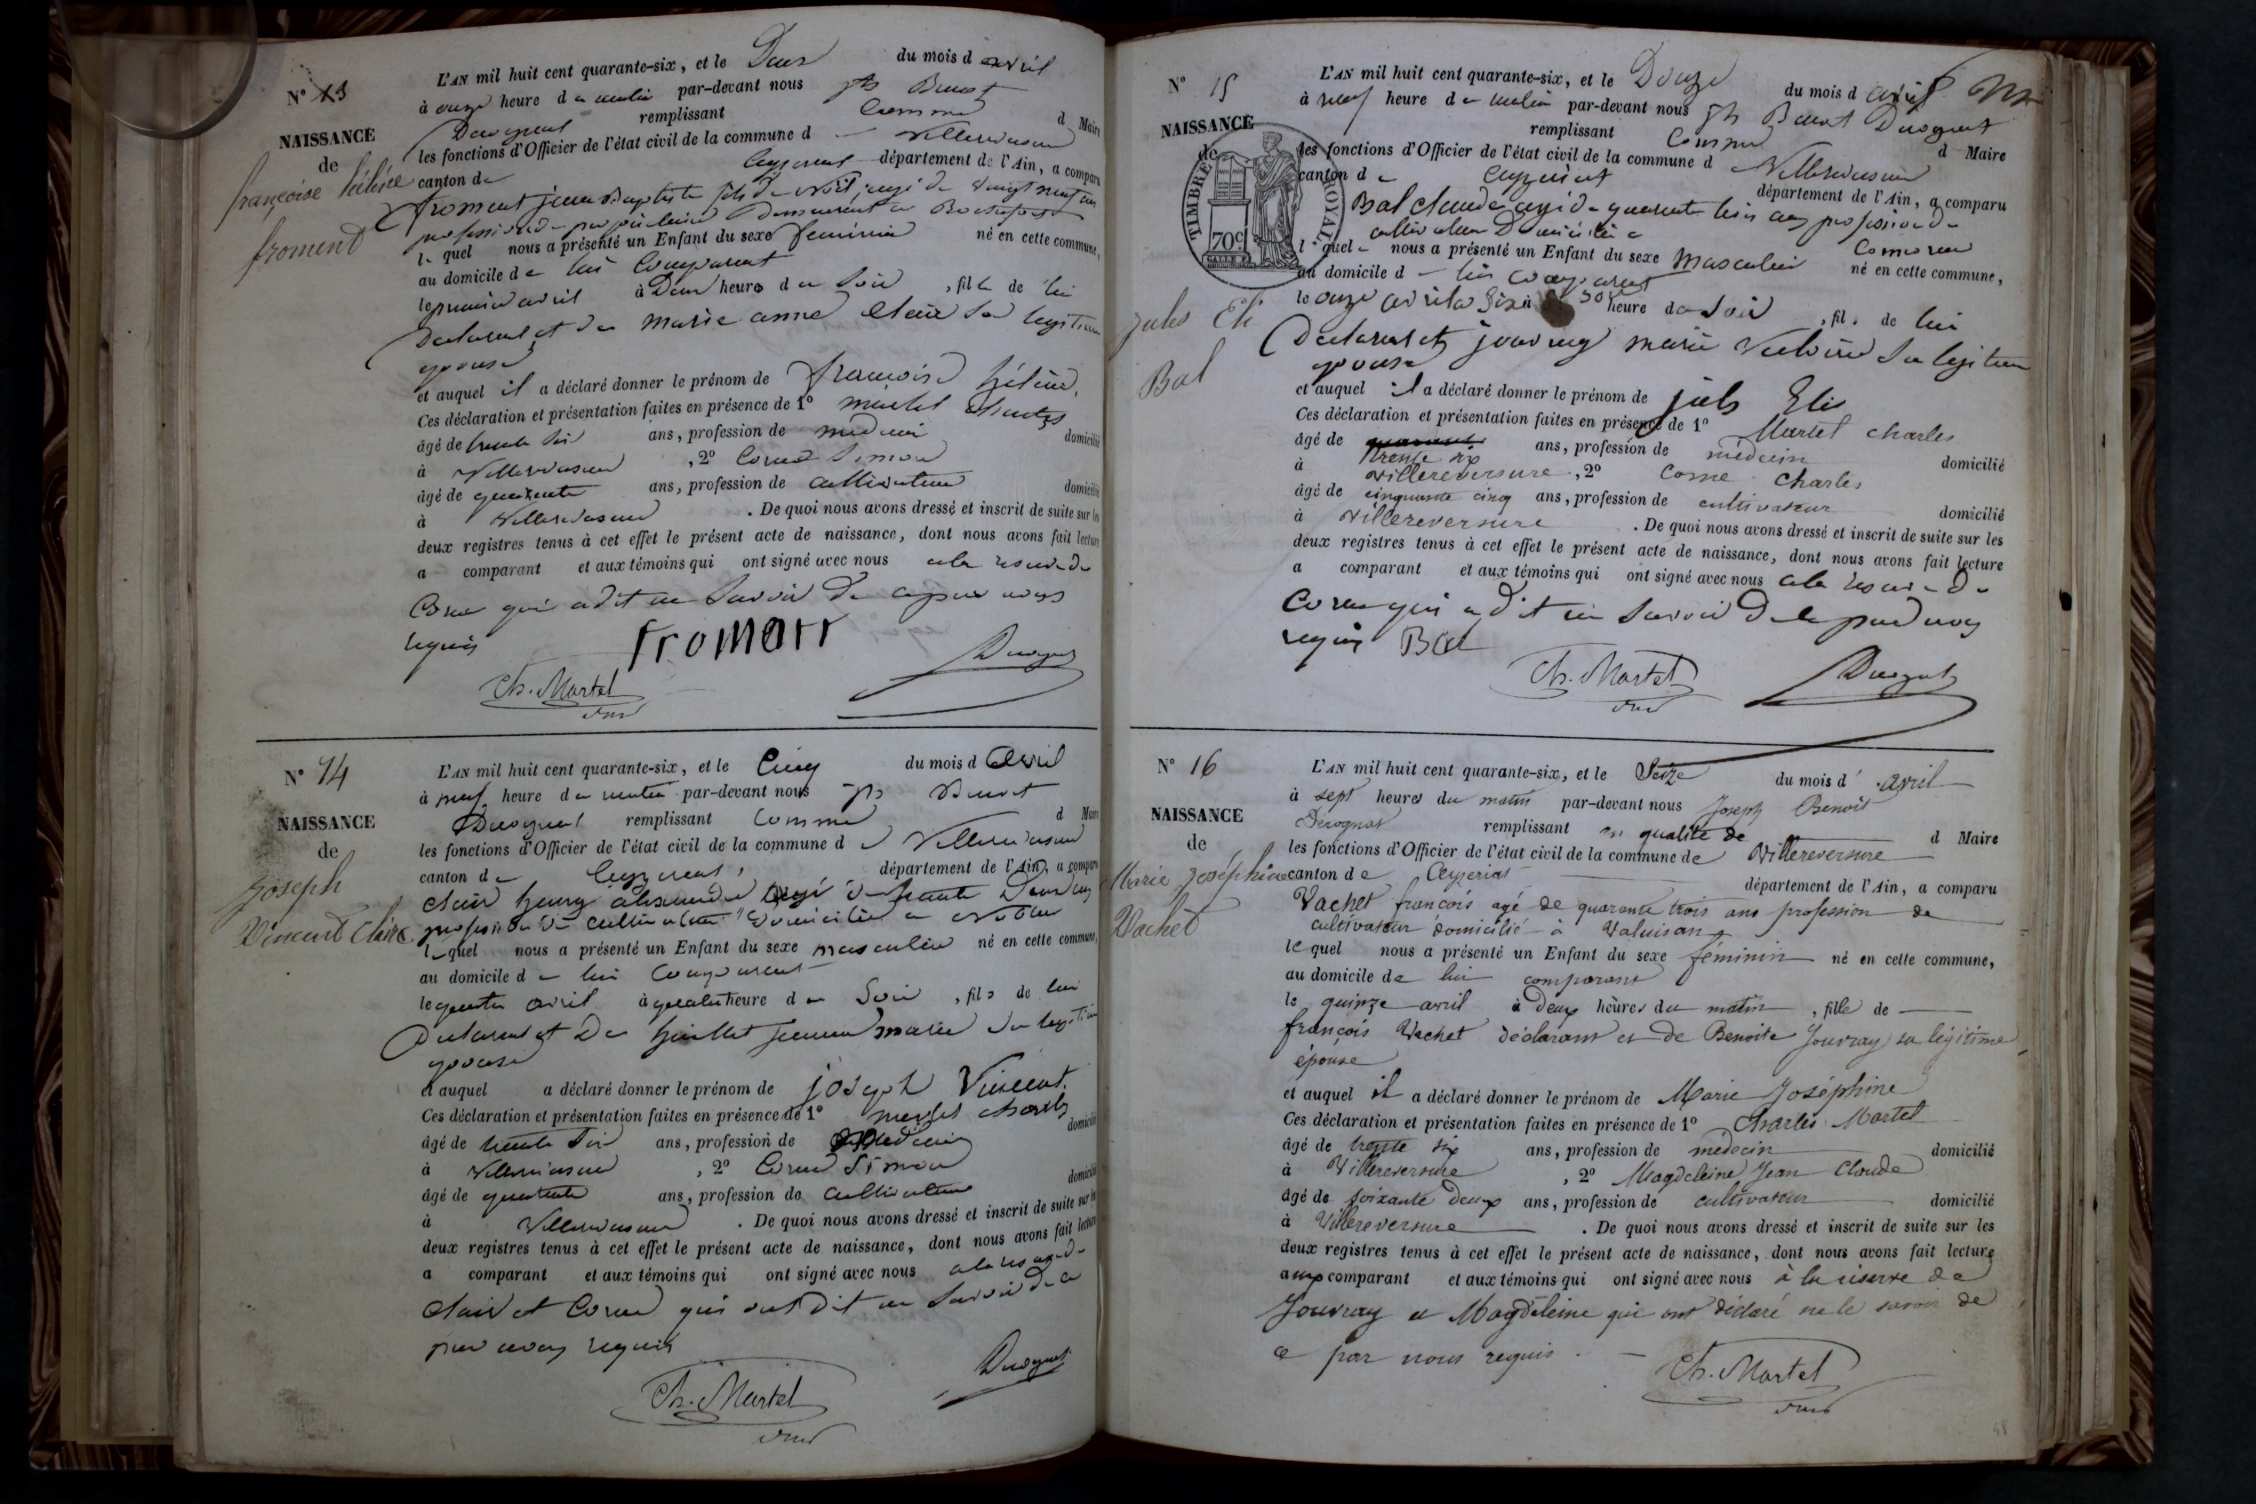 N° 13
NAISSANCE
de
françoise hélène
froment
L'AN mil huit cent quarante-six, et le Deux du mois d avril
à onze heure d matin par-devant nous jph Benoit
remplissant Comme d Maire
les fonctions d'Officier de l'état civil de la commune d Villereversure
canton de Ceyzeriat département de l'Ain, a comparu
froment jean Baptiste âgé de vingt neuf ans
profession de propriétaire Demeurant a Rochefort
le quel nous a présenté un Enfant du sexe feminin né en cette commune,
au domicile de lui Comparant
le premier avril à Deux heures du Soir, fille de lui
Declarant et de marie anne Claire Sa legitime
epouse
et auquel il a déclaré donner le prénom de françoise hélène.
Ces déclaration et présentation faites en présence de 1° martel charles
âgé de trente six ans, profession de médecin domicilié
à Villereversure, 2° Corne Simon
âgé de quarante ans, profession de cultivateur domicilié
à Villereversure. De quoi nous avons dressé et inscrit de suite sur les
deux registres tenus à cet effet le présent acte de naissance, dont nous avons fait lecture
a comparant et aux témoins qui ont signé avec nous a la reserve de
Corne qui a dit ne Savoir De ce par nous
requis
Ch. Martel
N° 14
NAISSANCE
de
Joseph
Vincent Claire.
L'AN mil huit cent quarante-six, et le Cinq du mois d avril
à neuf heure du matin par-devant nous jph Benoit
remplissant Comme d Maire
les fonctions d'Officier de l'état civil de la commune d Villereversure
canton de Ceyzeriat département de l'Ain, a comparu
Clair henry alexandre agé de trente Deux ans
profession de cultivateur Domicilié a
le quel nous a présenté un Enfant du sexe masculin né en cette commune,
au domicile de lui Comparant
le quatre avril à quatre heure du Soir, fils de lui
Declarant et De huillet jeanne marie Sa legitime
epouse
et auquel a déclaré donner le prénom de joseph Vincent.
Ces déclaration et présentation faites en présence de 1° martel charles
âgé de trente six ans, profession de medecin domicilié
à Villereversure, 2° Corne Simon
âgé de quarante ans, profession de cultivateur domicilié
à Villereversure. De quoi nous avons dressé et inscrit de suite sur les
deux registres tenus à cet effet le présent acte de naissance, dont nous avons fait lecture
a comparant et aux témoins qui ont signé avec nous a la reserve de
Clair et Corne qui ont Dit ne Savoir de ce
par nous requis
Ch. Martel
N° 15
NAISSANCE
de
TIMBRE ROYAL.
70c
Jules Eli
Bal
L'AN mil huit cent quarante-six, et le Douze du mois d avril
à neuf heure de matin par-devant nous jph Benoit Durognat
remplissant Comme d Maire
les fonctions d'Officier de l'état civil de la commune d Villereversure
canton d Ceyzeriat département de l'Ain, a comparu
Bal claude agé de quarante trois ans profession de
cultivateur Domicilié a
l quel nous a présenté un Enfant du sexe masculin né en cette commune,
au domicile d lui comparant
le onze avril à Six heure du Soir, fils de lui
Declarant et jouvray marie Victoire Sa legitime
epouse
et auquel il a déclaré donner le prénom de juls Elie
Ces déclaration et présentation faites en présence de 1° Martel charles
âgé de trente six ans, profession de médecin domicilié
à Villereversure, 2° Corne Charles
âgé de cinquante cinq ans, profession de cultivateur domicilié
à Villereversure. De quoi nous avons dressé et inscrit de suite sur les
deux registres tenus à cet effet le présent acte de naissance, dont nous avons fait lecture
a comparant et aux témoins qui ont signé avec nous a la reserve de
Corne qui a dit ne Savoir De ce par nous
requis Bal
Ch. Martel
N° 16
NAISSANCE
de
Marie Joséphine
Vachet
L'AN mil huit cent quarante-six, et le Seize du mois d' avril
à sept heures du matin par-devant nous Joseph Benoit
Durognat remplissant en qualité de d Maire
les fonctions d'Officier de l'état civil de la commune de Villereversure
canton de Ceyzeriat département de l'Ain, a comparu
Vachet françois agé de quarante trois ans profession de
cultivateur domicilié à Valuisant
le quel nous a présenté un Enfant du sexe féminin né en cette commune,
au domicile de lui comparant
le quinze avril à Deux heures du matin, fille de
françois Vachet déclarant et de Benoite Jouvray sa légitime
épouse
et auquel il a déclaré donner le prénom de Marie Joséphine
Ces déclaration et présentation faites en présence de 1° Charles Martel
âgé de trente six ans, profession de médecin domicilié
à Villereversure, 2° Magdeleine Jean Claude
âgé de soixante deux ans, profession de cultivateur domicilié
à Villereversure. De quoi nous avons dressé et inscrit de suite sur les
deux registres tenus à cet effet le présent acte de naissance, dont nous avons fait lecture
aux comparant et aux témoins qui ont signé avec nous à la réserve de
Jouvray et Magdeleine qui ont déclaré ne le savoir de
ce par nous requis.
Ch. Martel